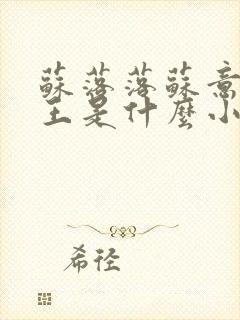 蘇落落蘇意
王是什麼小
希徑